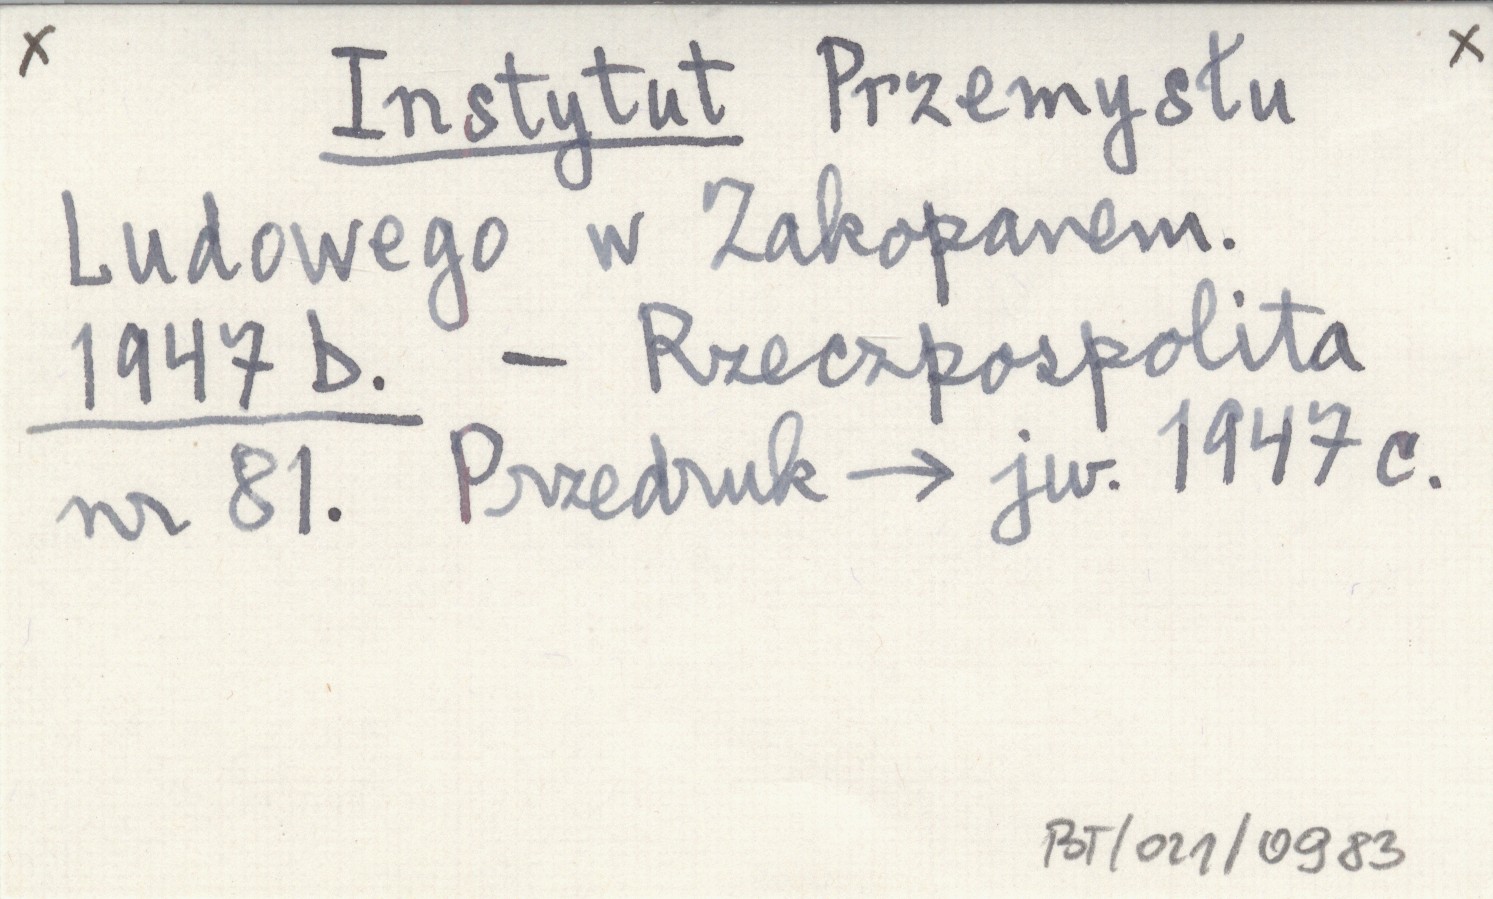 x Instytut Przemysłu x
Ludowego w Zakopanem.
1947 b. – Rzeczpospolita
nr 81. Przedruk → jw. 1947 c.
BT/021/0983